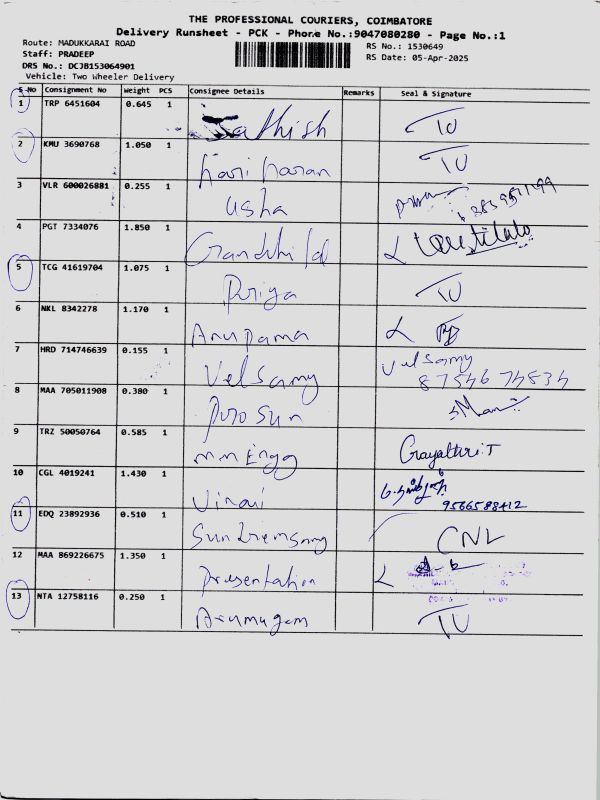 THE PROFESSIONAL COURIERS, COIMBATORE
Delivery Runsheet - PCK - Phone No.:9047080280 - Page No.:1
Route: MADUKKARAI ROAD
RS No.: 1530649
Staff: PRADEEP
RS Date: 05-Apr-2025
DRS No.: DCJB153064901
Vehicle: Two Wheeler Delivery
S No Consignment No Weight PCS Consignee Details Remarks Seal & Signature
1 TRP 6451604 0.645 1 Sathish TU
2 KMU 3690768 1.050 1 Hari haran TU
3 VLR 600026881 0.255 1 Usha
4 PGT 7334076 1.850 1
5 TCG 41619704 1.075 1 Priya TU
6 NKL 8342278 1.170 1 Anupama
7 HRD 714746639 0.155 1 Velsamy Velsamy
87546 74834
8 MAA 705011908 0.380 1 Mani
9 TRZ 50050764 0.585 1 MM Engg Gayathri.T
10 CGL 4019241 1.430 1
9566588412
11 EDQ 23892936 0.510 1 CNL
12 MAA 869226675 1.350 1 Presentation
13 NTA 12758116 0.250 1 Arumugam TU